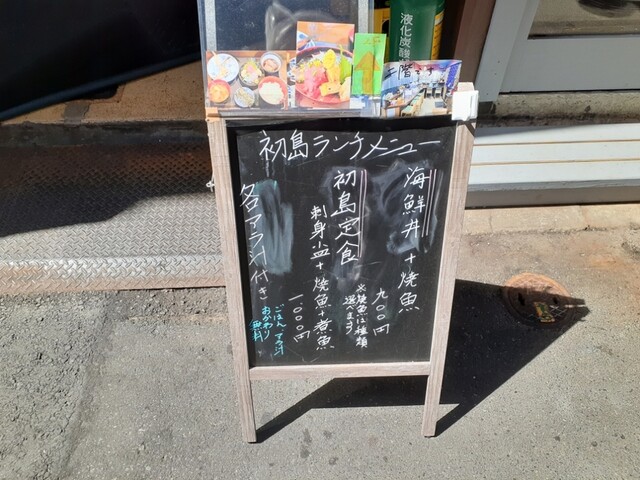 液化炭酸
二階です
初島ランチメニュー
海鮮丼+焼魚
九〇〇円
※焼魚は種類
選べます
初島定食
刺身小皿+焼魚+煮魚
一〇〇〇円
各アラ汁付き
ごはん、アラ汁
おかわり
無料